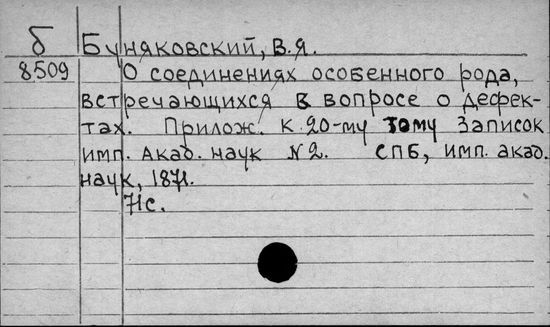 б Буняковский, В.Я.
8509 О соединениях особенного рода,
встречающихся в вопросе о дефек-
тах. Прилож. к 20-му тому Записок
имп. Акад. наук №2. СПБ, имп. акад.
наук, 1871.
71с.